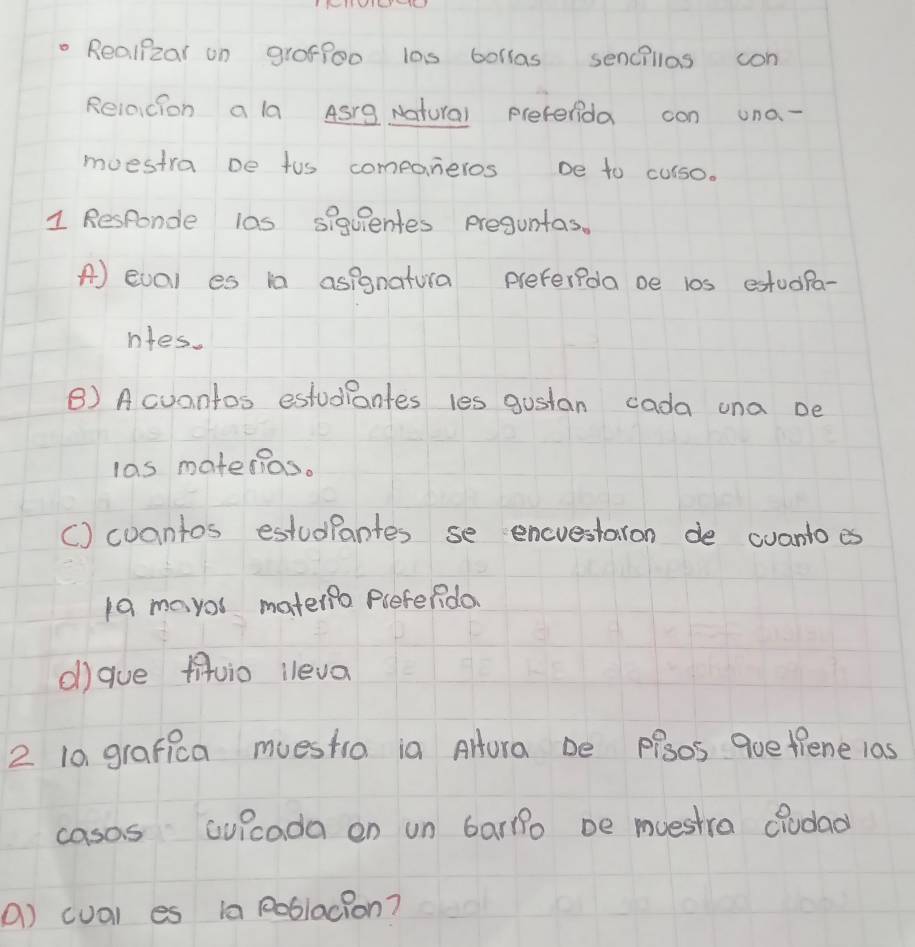 • Realizar un grafico las borras sencillas con
Relacion a la Asrg Natural preferida con una-
muestra De tus compañeros De tu curso.
1 Responde las siguientes preguntas.
A) cual es la asignatura preferida De los estudia-
ntes.
B) A cuantos estudiantes les gustan cada una De
las materias.
C) cuantos estudiantes se encuestaron de cuanto es
la mayor materia preferida
d) que titulo lleva
2 la grafica muestra la Altura De pisos que tiene las
casas cuicada en un barrio De muestra ciudad
a) cual es la poblacion?